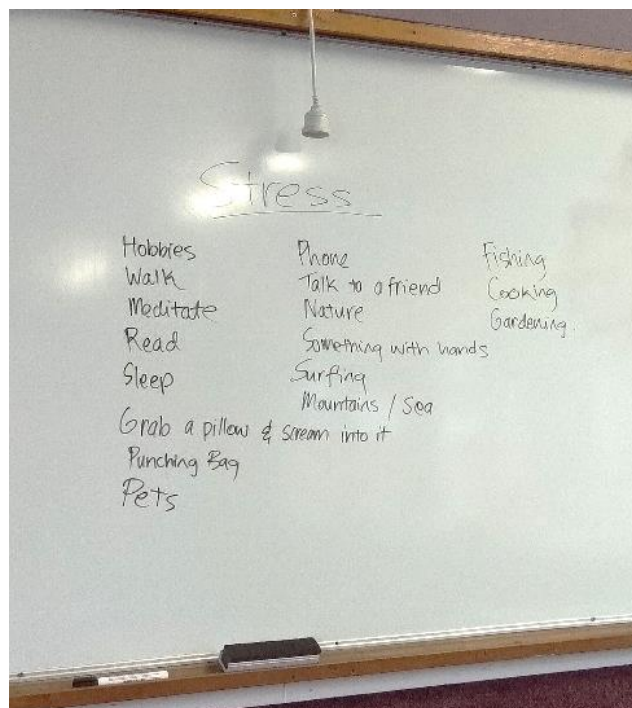 Stress
Hobbies
Walk
Meditate
Read
Sleep
Grab a pillow & scream into it
Punching Bag
Pets
Phone
Talk to a friend
Nature
Something with hands
Surfing
Mountains / Sea
Fishing
Cooking
Gardening.